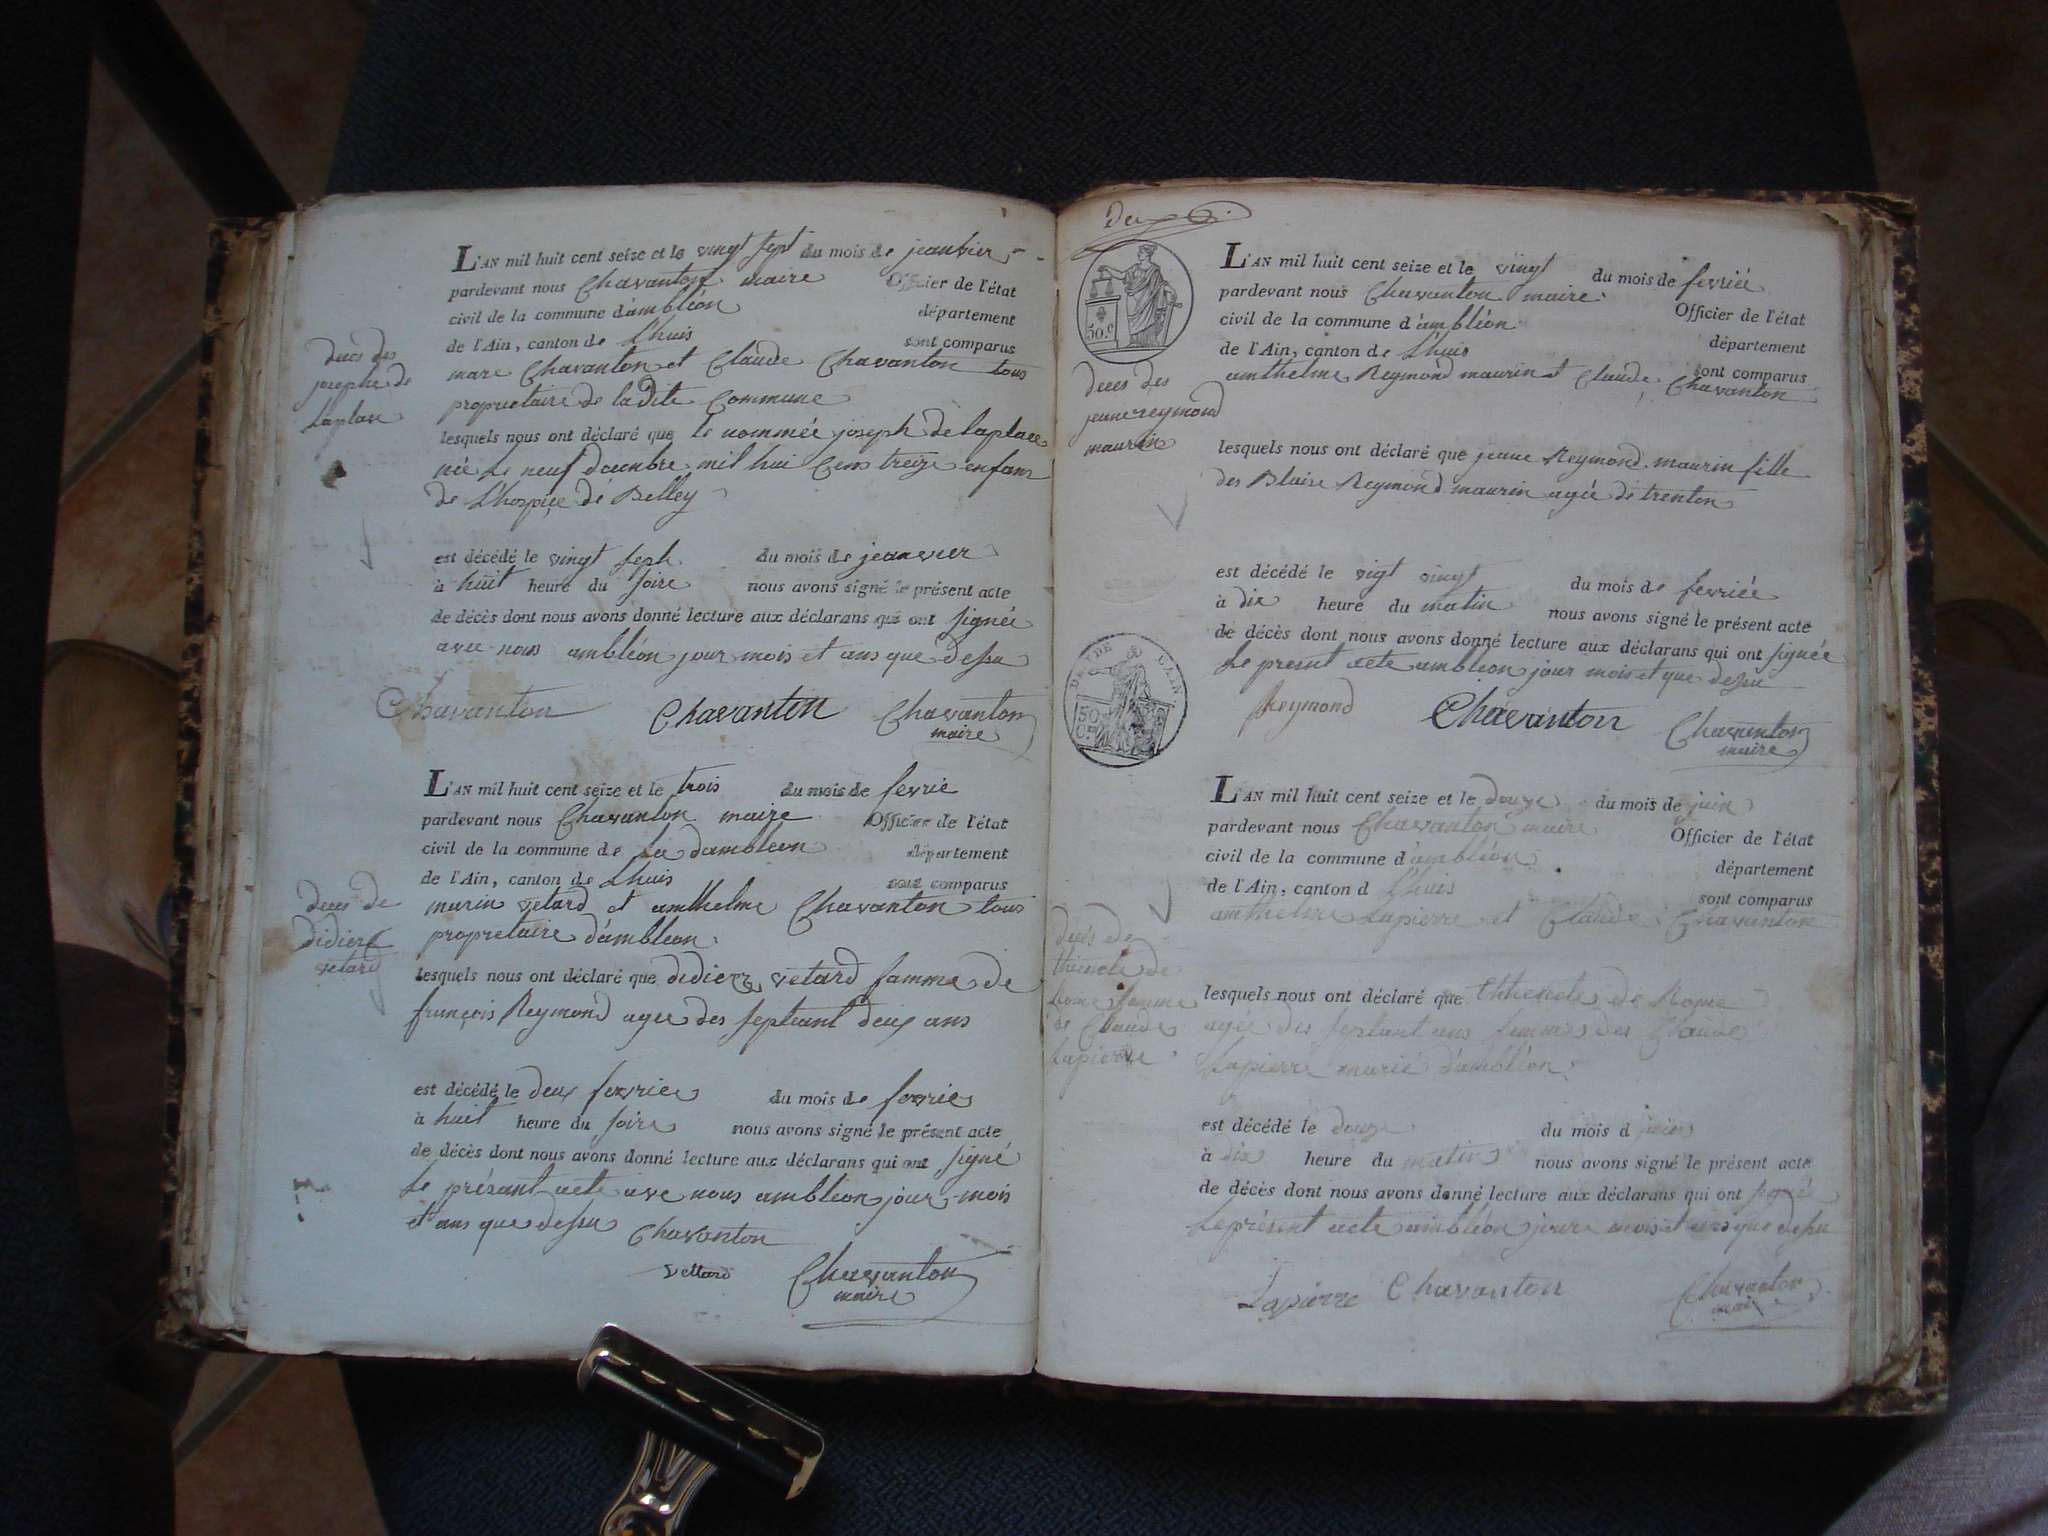 L'AN mil huit cent seize et le vingt sept du mois de jeanvier
pardevant nous Chavanton maire Officier de l'état
civil de la commune d'ambléon département
de l'Ain, canton de Lhuis sont comparus
marc Chavanton et Claude Chavanton tous
proprietaire de la dite Commune
deces des
josephe de
laplace
lesquels nous ont déclaré que le nommée joseph de laplace
née le neuf decembre mil hui Cens treize enfans
de Lhospice de Belley
est décédé le vingt seph du mois de jeanvier
à huit heure du soire nous avons signé le présent acte
de décès dont nous avons donné lecture aux déclarans qui ont signée
avec nous ambléon jour mois et ans que dessu
Chavanton Chavanton Chavanton
maire
L'AN mil huit cent seize et le trois du mois de fevrie
pardevant nous Chavanton maire Officier de l'état
civil de la commune de La dambleon département
de l'Ain, canton de Lhuis sont comparus
marin vetard et amthelme Chavanton tous
proprietaire d'ambleon
deces de
didiere
vetard
lesquels nous ont déclaré que didiere vetard famme de
françois Reymond agee des septeant deux ans
est décédé le deux fevrie du mois de fevrie
à huit heure du soire nous avons signé le présent acte
de décès dont nous avons donné lecture aux déclarans qui ont signé
le présant acte ave nous ambleon jour mois
et ans que dessu Chavanton
vettard Chavanton
maire
Deux
50.c
L'AN mil huit cent seize et le vingt du mois de fevriée
pardevant nous Chavanton maire Officier de l'état
civil de la commune d'ambléon département
de l'Ain, canton de Lhuis sont comparus
amthelme Reymond maurin et Claude Chavanton
deces des
jeane reymond
maurin
lesquels nous ont déclaré que jeane Reymond maurin fille
des Blaise Reymond maurin agée de trenton
est décédé le vigt vingt du mois de fevriée
à dix heure du matin nous avons signé le présent acte
de décès dont nous avons donné lecture aux déclarans qui ont signée
le present acte ambleon jour mois et que dessu
DE L'AIN
50
C.
Reymond Chavanton Chavanton
maire
L'AN mil huit cent seize et le douze du mois de juin
pardevant nous Chavanton maire Officier de l'état
civil de la commune d'ambléon département
de l'Ain, canton d Lhuis sont comparus
amthelme Lapierre et Claude Chavanton
decès de
thienete de
Rome femme
de Claude
Lapierre
lesquels nous ont déclaré que Ethienete de Rome
agée des septant ans femme des Claude
Lapierre marié d'ambléon
est décédé le douze du mois d juin
à dix heure du matin nous avons signé le présent acte
de décès dont nous avons donné lecture aux déclarans qui ont signé
le présent acte ambléon jour mois et ans que dessu
Lapierre Chavanton Chavanton
maire